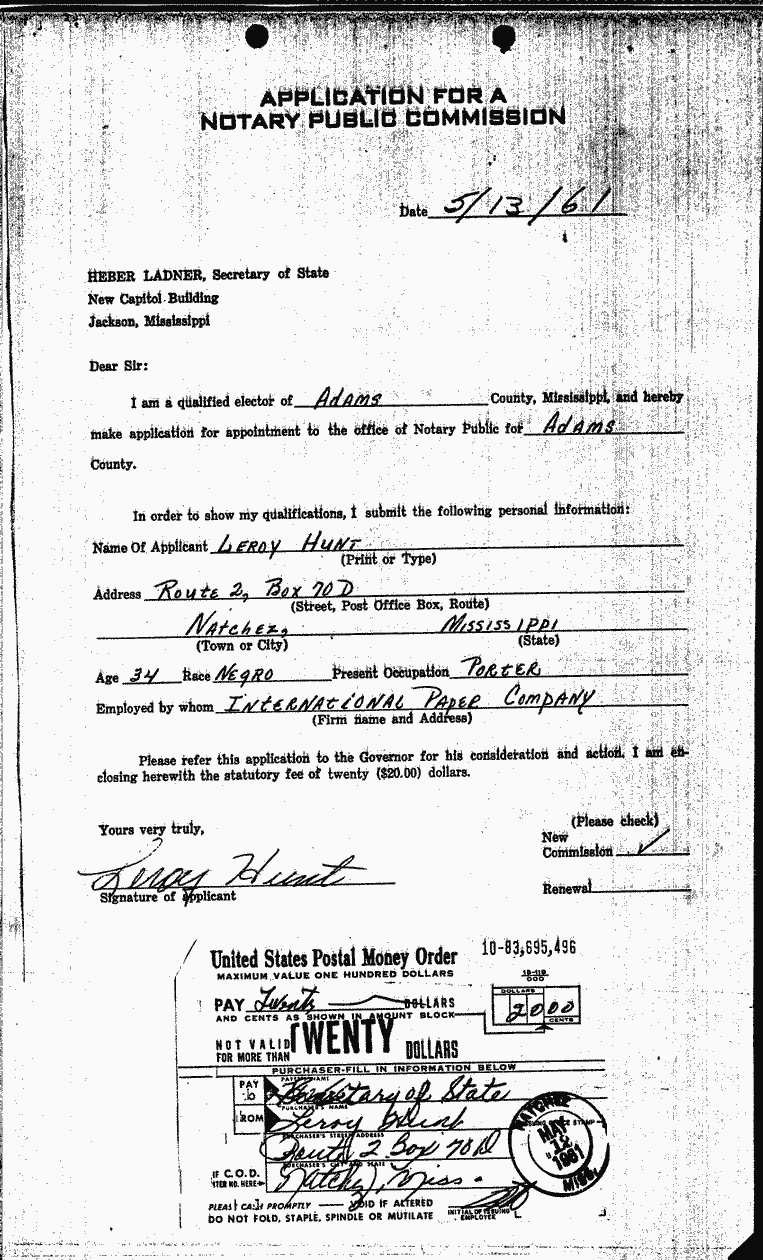 APPLICATION FOR A
NOTARY PUBLIC COMMISSION
Date 5/13/61
HEBER LADNER, Secretary of State
New Capitol Building
Jackson, Mississippi
Dear Sir:
I am a qualified elector of Adams County, Mississippi, and hereby
make application for appointment to the office of Notary Public for Adams
County.
In order to show my qualifications, I submit the following personal information:
Name Of Applicant LEROY HUNT
(Print or Type)
Address Route 2, Box 70 D
(Street, Post Office Box, Route)
NATCHEZ, MISSISSIPPI
(Town or City) (State)
Age 34 Race NEGRO Present Occupation PORTER
Employed by whom INTERNATIONAL PAPER COMPANY
(Firm name and Address)
Please refer this application to the Governor for his consideration and action. I am en-
closing herewith the statutory fee of twenty ($20.00) dollars.
Yours very truly,
(Please check)
New
Commission ✓
Leroy Hunt
Signature of applicant
Renewal
United States Postal Money Order 10-83,695,496
MAXIMUM VALUE ONE HUNDRED DOLLARS
DOLLARS
PAY Twenty DOLLARS 20 00
AND CENTS AS SHOWN IN AMOUNT BLOCK CENTS
NOT VALID
FOR MORE THAN TWENTY DOLLARS
PURCHASER-FILL IN INFORMATION BELOW
PAY TO Secretary of State
PURCHASER'S NAME
FROM Leroy Hunt
PURCHASER'S STREET ADDRESS
Route 2 Box 70 D
PURCHASER'S CITY AND STATE
IF C.O.D.
ITER NO. HERE Natchez, Miss.
NATCHEZ
MAY
12
1961
MISS.
PLEASE CASH PROMPTLY VOID IF ALTERED
DO NOT FOLD, STAPLE, SPINDLE OR MUTILATE
INITIAL OF ISSUING
EMPLOYEE